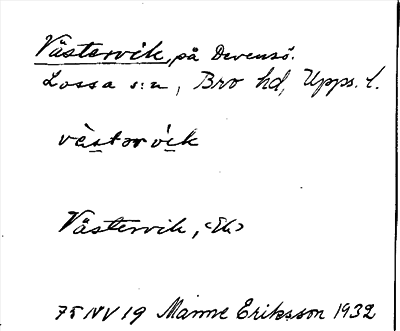 Västervik, på Devensö.
Lossa s:n, Bro hd, Upps. l.
västərvik
Västervik, <Ek>
75 NV 19 Manne Eriksson 1932